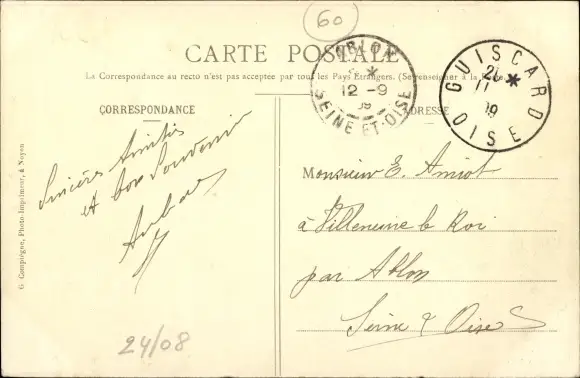 60
CARTE POSTALE
La Correspondance au recto n'est pas acceptée par tous les Pays Etrangers. (Se renseigner à la Poste
CORRESPONDANCE
ADRESSE
ABLON
12 -9
09
SEINE-ET-OISE
GUISCARD
21
11
09
OISE
Sincères Amitiés
et bon Souvenir
Monsieur E. Amiot
à Villeneuve le Roi
par Ablon
Seine & Oise
G Compiègne, Photo-Imprimeur, à Noyon
24/08